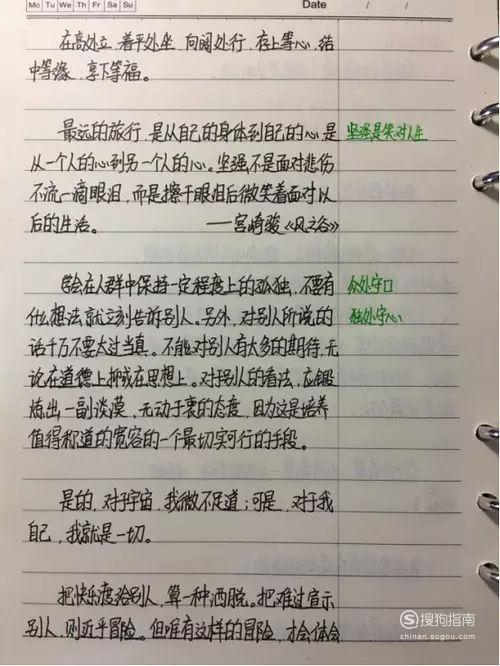 Mo Tu We Th Fr Sa Su Date / /
在高处立，着平处坐，向阔处行，存上等心，结
中等缘，享下等福。
最远的旅行，是从自己的身体到自己的心，是 坚强是笑对人生
从一个人的心到另一个人的心。坚强不是面对悲伤
不流一滴眼泪，而是擦干眼泪后微笑着面对以
后的生活。 ——宫崎骏《风之谷》
学会在人群中保持一定程度上的孤独，不要有 众处守口
什么想法就立刻告诉别人。另外，对别人所说的 独处守心
话千万不要太过当真。不能对别人有太多的期待，无
论在道德上抑或在思想上。对别人的看法，应锻
炼出一副淡漠，无动于衷的态度，因为这是培养
值得称道的宽容的一个最切实可行的手段。
是的，对于宇宙，我微不足道；可是，对于我
自己，我就是一切。
把快乐渡给别人，算一种洒脱。把难过宣示
别人，则近乎冒险。但唯有这样的冒险，才会体会
搜狗指南
zhinan.sogou.com